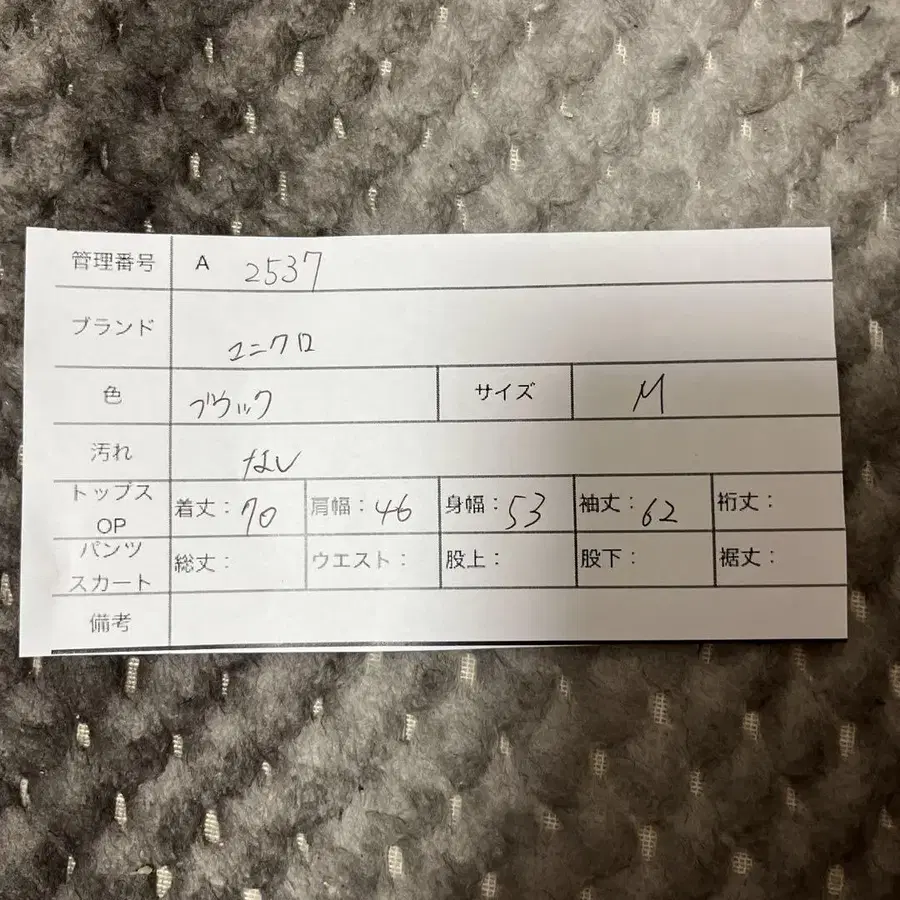 管理番号 A 2537
ブランド ユニクロ
色 ブラック サイズ M
汚れ なし
トップス OP 着丈：70 肩幅：46 身幅：53 袖丈：62 裄丈：
パンツ スカート 総丈： ウエスト： 股上： 股下： 裾丈：
備考